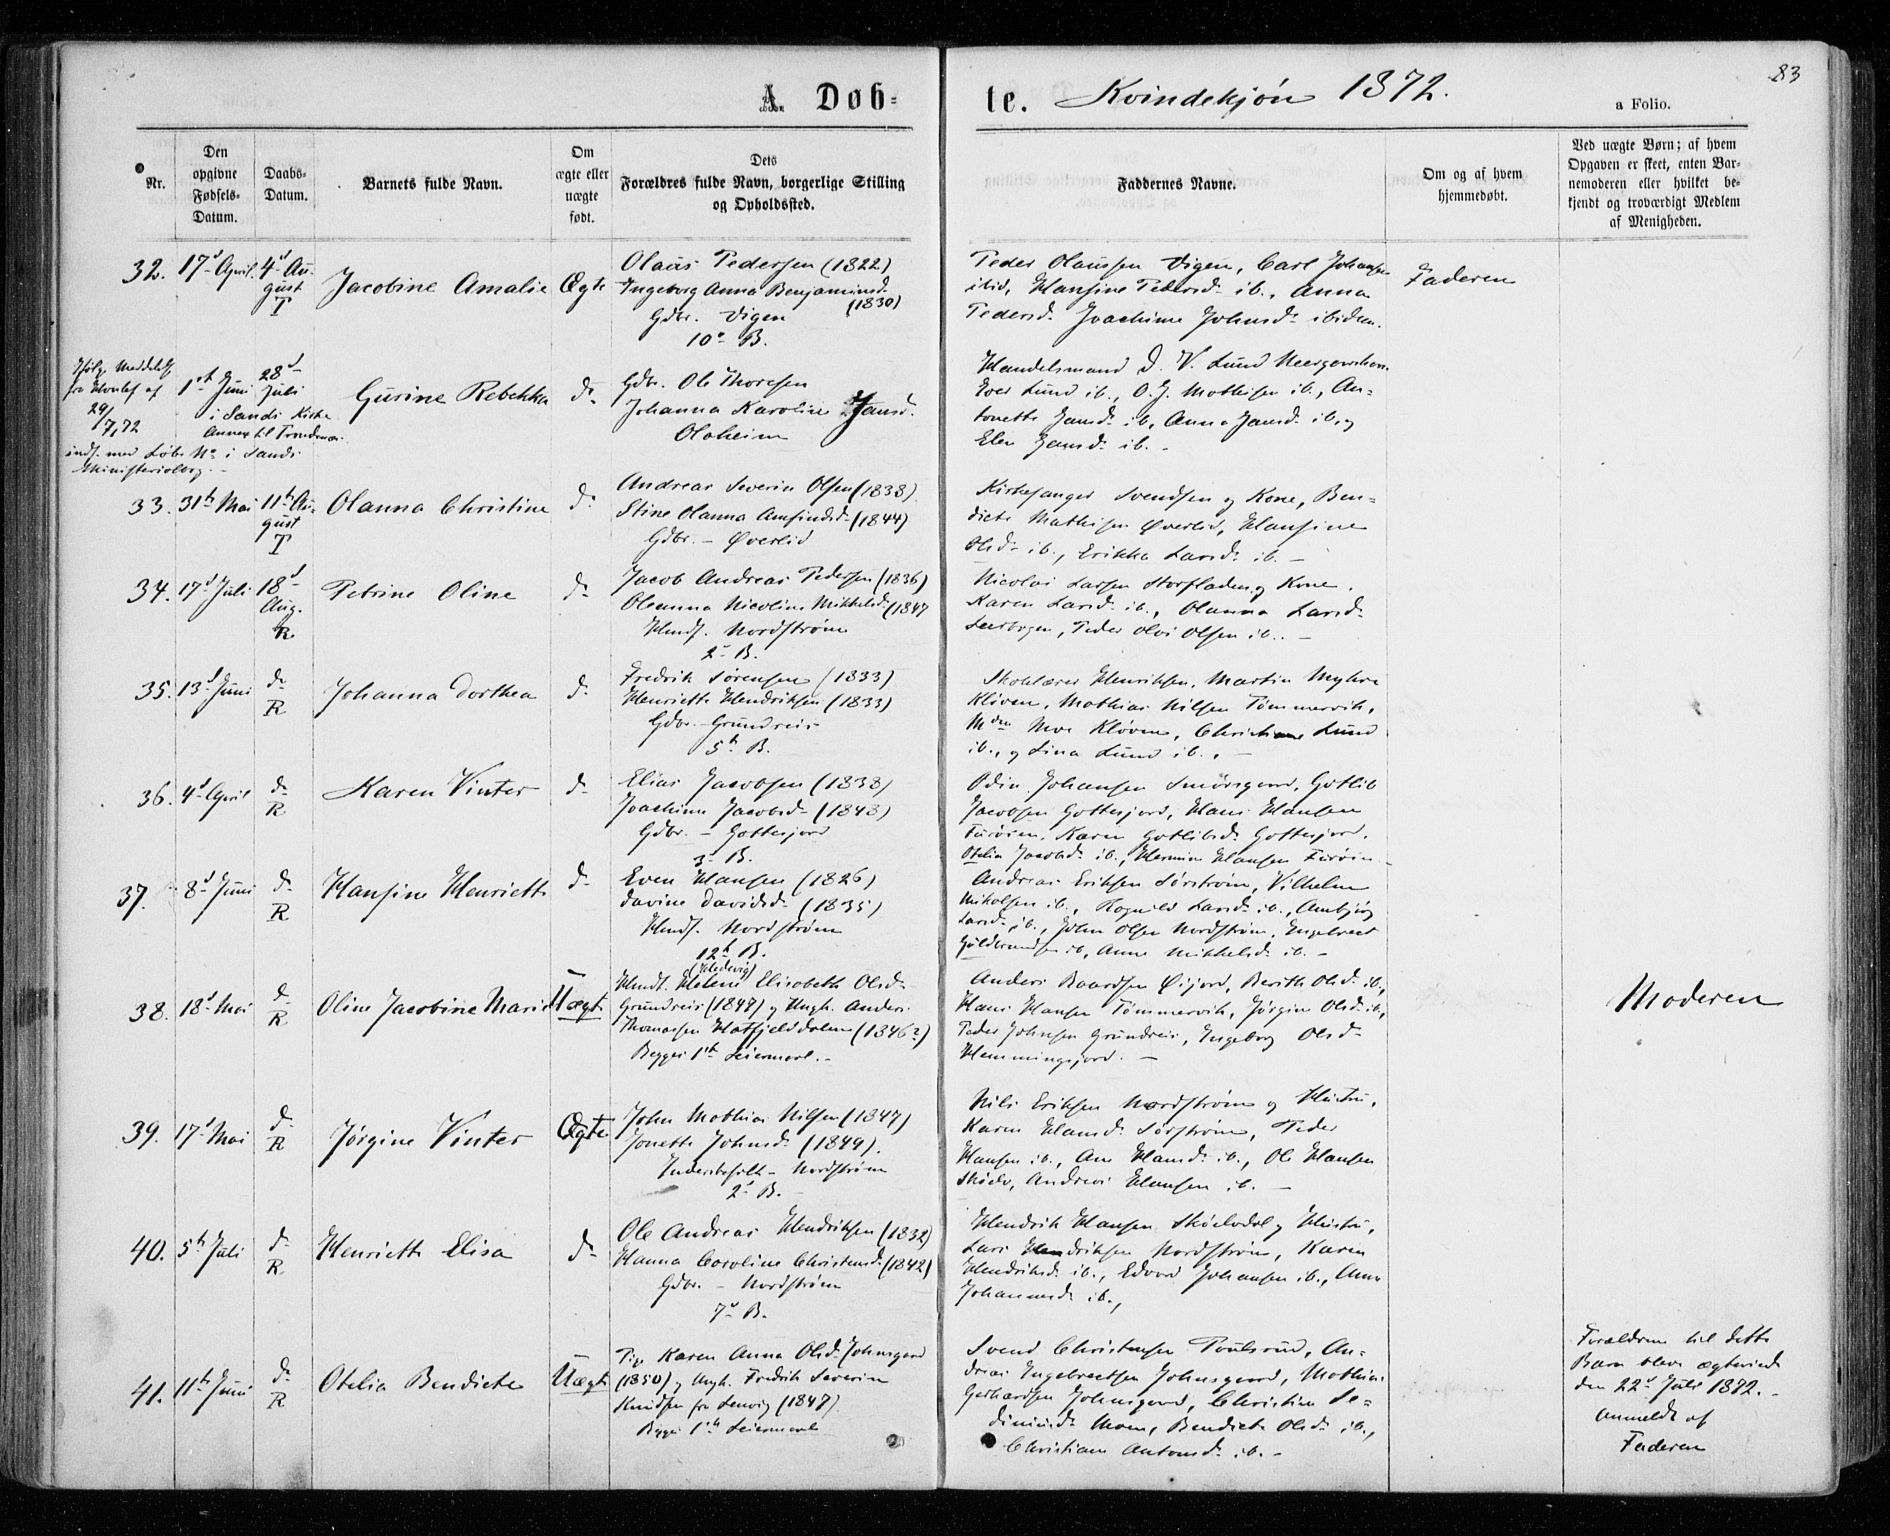 83
A. Døb-
te. Kvindekjøn 1872.
a Folio.
Nr.
Den opgivne Fødsels-Datum.
Daabs-Datum.
Barnets fulde Navn.
Om ægte eller uægte født.
Dets Forældres fulde Navn, borgerlige Stilling og Opholdssted.
Faddernes Navne.
Om og af hvem hjemmedøbt.
Ved uægte Børn; af hvem Opgaven er skeet, enten Barnemoderen eller hvilket bekjendt og troværdigt Medlem af Menigheden.
32. 17d April. 4d Au-
gust
T
Jacobine Amalie Ægte
Olaus Pedersen (1822)
Ingeborg Anna Benjaminsd.
(1830)
Gdbr. Vigen
10de B.
Peder Olaussen Vigen, Carl Johansen
ibid, Hansine Pedersd. ib., Anna
Pedersd. Joachime Johnsd. ibidem.
Faderen
29/7,72
1ste Juni 28d Juli
i Sands Kirke
Annex til Trondenæs
indf. med Løbe No i Sands
Ministerialbog.
Gurine Rebekka do
Gdbr. Ole Thoresen
Johanna Karoline Jansd.
Oloheim
Handelsmand D. V. Lund
Lund ib., O. J. Mathisen ib., An-
tonette Jansd. ib., Anna Jansd. ib. og
Elen Jansd. ib.
33. 31te Mai 11te Au-
gust
T
Olanna Christine do
Andreas Severin Olsen (1838)
Stine Olanna Amundsd. (1844)
Gdbr. - Øverlid
Kirkesanger Svendsen og Kone, Ben-
dicte Mathisen Øverlid, Hansine
Olsd. ib., Erikka Larsd. ib.
34. 17d Juli 18d
Aug.
R
Petrine Oline do
Jacob Andreas Pedersen (1836)
Oleanna Nicoline Mikkelsd. (1847
Hmdf. Nordstrøm
2d B.
Nicolai Larsen Storfladen og Kone,
Karen Larsd. ib., Olanna Larsd.
Leerbogen, Peder Olsen ib.
35. 13d Juni do
R
Johanna Dorthea do
Fredrik Sørensen (1833)
Henriette Hendriksen (1833)
Gdbr. - Grundreis
5te B.
Skolelærer Henriksen, Martin Myhre
Kløven, Mathias Nilsen Tømmervik,
Mdm Moe Kløven, Christiane Lund
ib., og Lina Lund ib.
36. 4d April do
R
Karen Vinter do
Elias Jacobsen (1838)
Joachime Jacobsd. (1843)
Gdbr. - Gottesjord
3d B.
Odin Johansen Smørsgaard, Gotlib
Jacobsen Gottesjord, Hans Hansen
Furøen, Karen Gotlibsd. Gottesjord.
Otelia Jacobsd. ib., Hansen Furøen
37. 8d Juni do
R
Hansine Henriette do
Even Hansen (1826)
Davine Davidsd. (1835)
Hmdf. Nordstrøm
12te B.
Andreas Eriksen Sørstrøm, Vilhelm
Nikolsen ib., Ragnild Larsd. ib., Ambjørg
Larsd. ib., John Olsen Nordstrøm, Engebrect
Guldbrandsen ib., Anne Mikkelsd. ib.
38. 18d Mai do
R
Oline Jacobine Marie Uægte
(Hedevig)
Hmdf. Helene Elisabeth Olsd.
Grundreis (1849) og Ungk. Anders
Thomasen Hatfjelddalen (1846?)
Begges 1ste Leiermaal.
Anders Baardsen Øijord, Berith Olsd. ib.,
Hans Hansen Tømmervik, Jørgine Olsd. ib.,
Peder Johnsen Grundreis, Ingeborg Olsd.
Hemmingsjord.
Moderen
39. 17d Mai do
R
Jørgine Vinter Ægte
John Mathias Nilsen (1847)
Jonette Johnsd. (1849).
Inderstefolk - Nordstrøm
2d B.
Nils Eriksen Nordstrøm og Hustru,
Karen Hansd. Sørstrøm, Peder
Hansen ib., Ane Hansd. ib., Ole Hansen
Andreas Hansen ib.
40. 5te Juli do
R
Henriette Elisa do
Ole Andreas Hendriksen (1832)
Hanna Caroline Christensd. (1842)
Gdbr. - Nordstrøm
7d B.
Hendrik Hansen Skøelvdal og Hustru,
Lars Hendriksen Nordstrøm, Karen
Hendriksd. ib., Edvard Johansen ib., Ane
Johannesd. ib.,
41. 11te Juni do
R
Otelia Bendicte Uægte
Pige Karen Anna Olsd. Johnsgaard
(1850) og Ungk. Fredrik Severin
Knudsen fra Lenvig (1847)
Begges 1ste Leiermaal
Svend Christensen Poulsrud, An-
dreas Engebrectsen Johnsgaard, Mathias
Gerhardsen Johnsgaard, Christine Se-
diniusd. Moen, Bendicte Olsd. ib.,
Christiane Antonsd. ib.
Forældrene til dette
Barn bleve ægteviede
den 22d Juli 1872.
Anmeldt af
Faderen